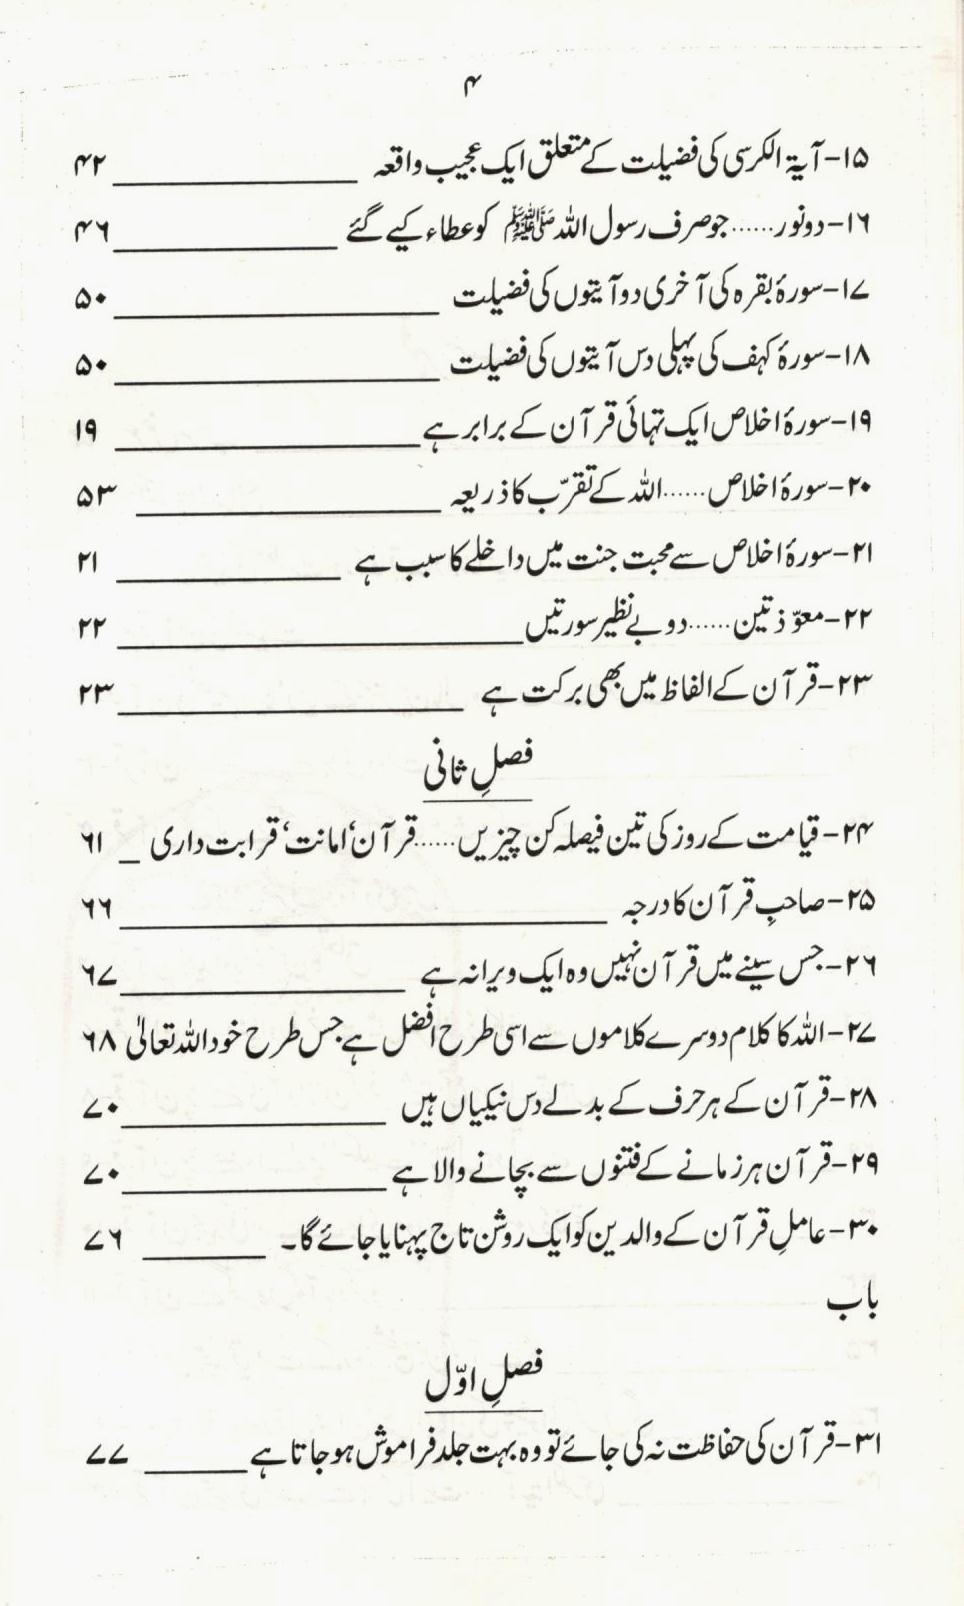 ۴
۱۵- آیۃ الکرسی کی فضیلت کے متعلق ایک عجیب واقعہ ____________ ۴۲
۱۶- دو نور......جو صرف رسول اللہ ﷺ کو عطاء کیے گئے ____________ ۴۶
۱۷- سورۂ بقرہ کی آخری دو آیتوں کی فضیلت ____________ ۵۰
۱۸- سورۂ کہف کی پہلی دس آیتوں کی فضیلت ____________ ۵۰
۱۹- سورۂ اخلاص ایک تہائی قرآن کے برابر ہے ____________ ۱۹
۲۰- سورۂ اخلاص......اللہ کے تقرّب کا ذریعہ ____________ ۵۳
۲۱- سورۂ اخلاص سے محبت جنت میں داخلے کا سبب ہے ____________ ۲۱
۲۲- معوّذتین......دو بے نظیر سورتیں ____________ ۲۲
۲۳- قرآن کے الفاظ میں بھی برکت ہے ____________ ۲۳
فصلِ ثانی
۲۴- قیامت کے روز کی تین فیصلہ کن چیزیں......قرآن‘ امانت‘ قرابت داری _ ۶۱
۲۵- صاحبِ قرآن کا درجہ ____________ ۶۶
۲۶- جس سینے میں قرآن نہیں وہ ایک ویرانہ ہے ____________ ۶۷
۲۷- اللہ کا کلام دوسرے کلاموں سے اسی طرح افضل ہے جس طرح خود اللہ تعالیٰ ۶۸
۲۸- قرآن کے ہر حرف کے بدلے دس نیکیاں ہیں ____________ ۷۰
۲۹- قرآن ہر زمانے کے فتنوں سے بچانے والا ہے ____________ ۷۰
۳۰- عاملِ قرآن کے والدین کو ایک روشن تاج پہنایا جائے گا۔ ______ ۷۶
باب
فصلِ اوّل
۳۱- قرآن کی حفاظت نہ کی جائے تو وہ بہت جلد فراموش ہو جاتا ہے ______ ۷۷